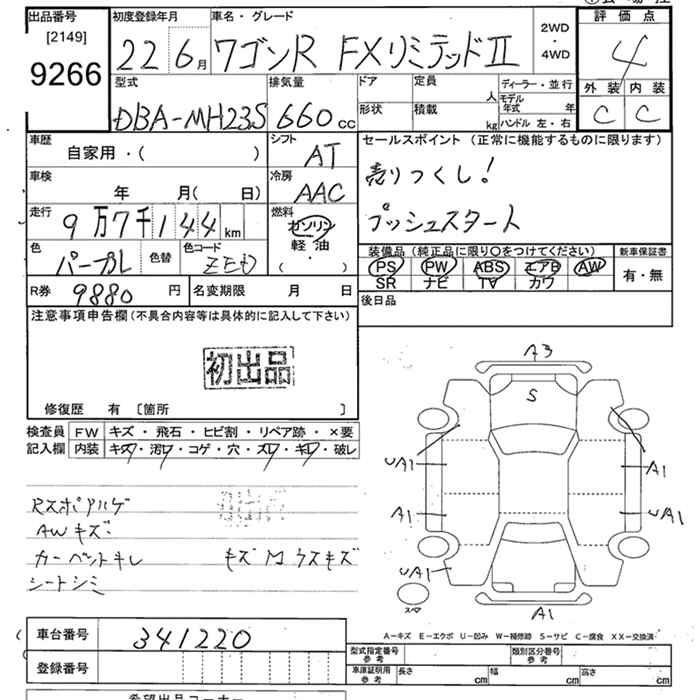 出品番号 初度登録年月 車名・グレード 評価点
[2149] 2WD
9266 22 6月 ワゴンR FXリミテッドⅡ ・ 4
4WD
型式 排気量 ドア 定員 ディーラー・並行 外装 内装
DBA-MH23S 660cc 形状 積載 人 モデル年式 年 C C
kg ハンドル 左・右
車歴 シフト セールスポイント (正常に機能するものに限ります)
自家用・( ) AT
車検 冷房 売りつくし!
年 月( 日) AAC
走行 燃料 プッシュスタート
9万7千144km ガソリン
色 色替 色コード 軽油 装備品 (純正品に限り○をつけてください) 新車保証書
パープル ZEU ・( ) PS PW ABS エアB AW 有・無
SR ナビ TV カワ
R券 9880円 名変期限 月 日 後日品
注意事項申告欄(不具合内容等は具体的に記入して下さい)
初出品
修復歴 有 〔箇所 〕
検査員 FW キズ・飛石・ヒビ割・リペア跡・×要
記入欄 内装 キズ・汚レ・コゲ・穴・スレ・キレ・破レ
A3
S
UA1 A1
A1 UA1
UA1
スペア A1
AWキズ
カーペットキレ キズ M ウスキズ
シートシミ
車台番号 341220
A-キズ E-エクボ U-凹み W-補修跡 S-サビ C-腐食 XX-交換済
登録番号 型式指定番号 参考 類別区分番号 参考
車庫証明用 参考 長さ cm 幅 cm 高さ cm
希望出品コーナー